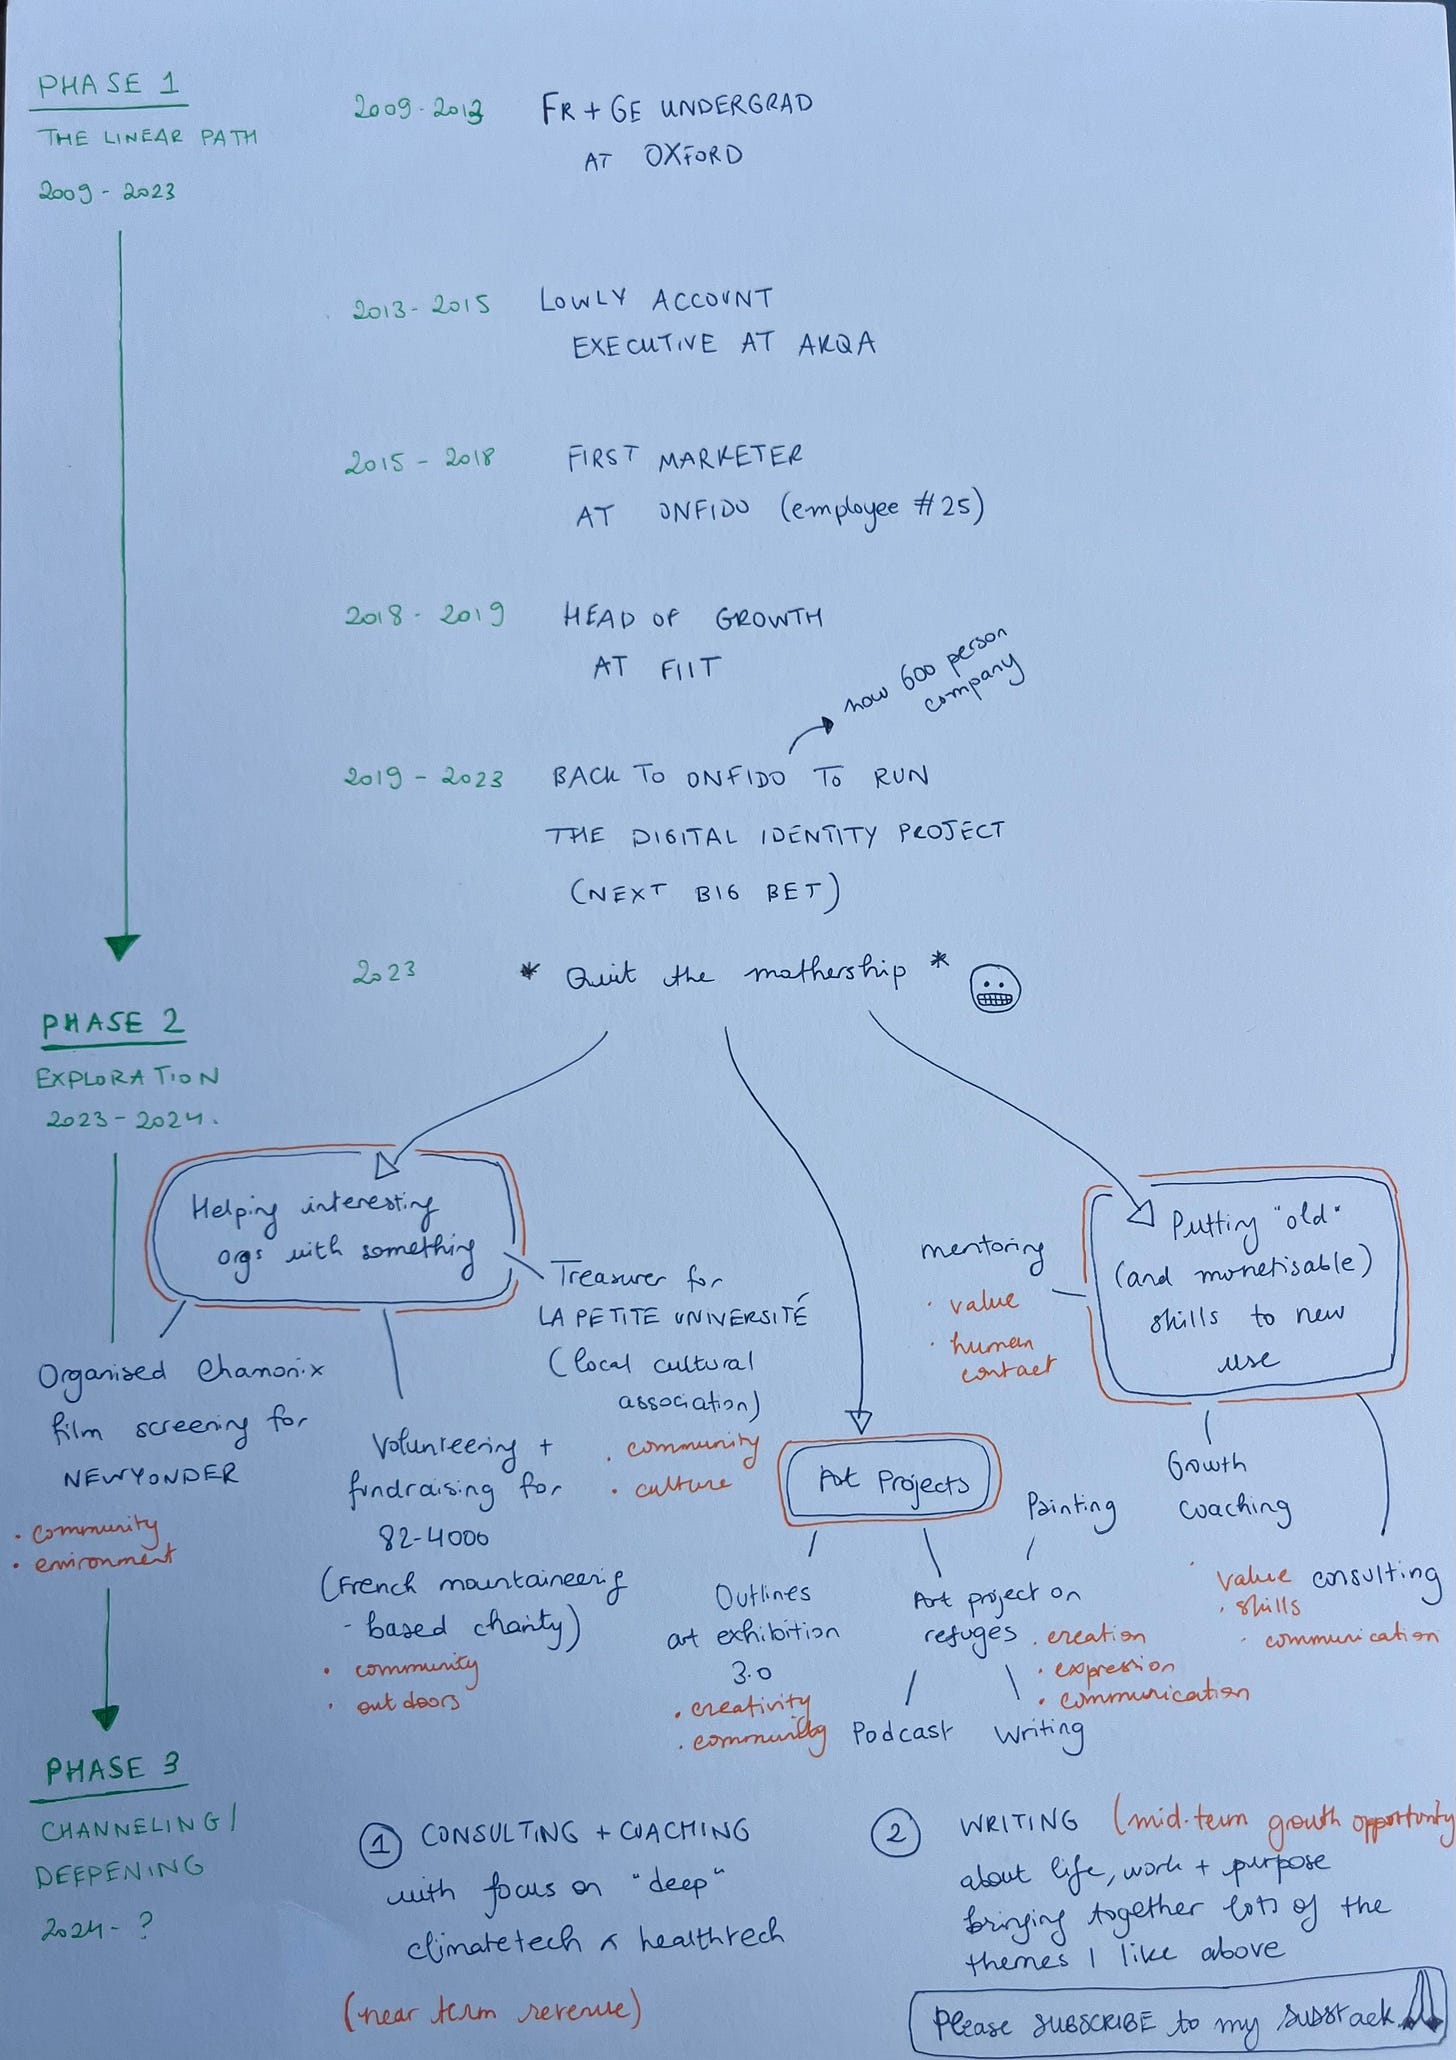 PHASE 1
THE LINEAR PATH
2009 - 2023
2009 - 2013
FR + GE UNDERGRAD
AT OXFORD
2013 - 2015
LOWLY ACCOUNT
EXECUTIVE AT AKQA
2015 - 2018
FIRST MARKETER
AT ONFIDO (employee #25)
2018 - 2019
HEAD OF GROWTH
AT FIIT
now 600 person
company
2019 - 2023
BACK TO ONFIDO TO RUN
THE DIGITAL IDENTITY PROJECT
(NEXT BIG BET)
2023
* Quit the mothership *
PHASE 2
EXPLORATION
2023 - 2024.
Helping interesting
orgs with something
Organised Chamonix
film screening for
NEWYONDER
• community
• environment
Volunteering +
fundraising for
82-4000
(French mountaineering
- based charity)
• community
• outdoors
Treasurer for
LA PETITE UNIVERSITÉ
(local cultural
association)
• community
• culture
Art Projects
Outlines
art exhibition
3.0
• creativity
• community
Painting
Art project on
refuges
• creation
• expression
• communication
Podcast
Writing
Putting "old"
(and monetisable)
skills to new
use
mentoring
• value
• human
contact
Growth
coaching
consulting
• value
• skills
• communication
PHASE 3
CHANNELING /
DEEPENING
2024 - ?
1 CONSULTING + COACHING
with focus on "deep"
climatetech & healthtech
(near term revenue)
2 WRITING (mid-term growth opportunity
about life, work + purpose
bringing together lots of the
themes I like above
Please SUBSCRIBE to my substack